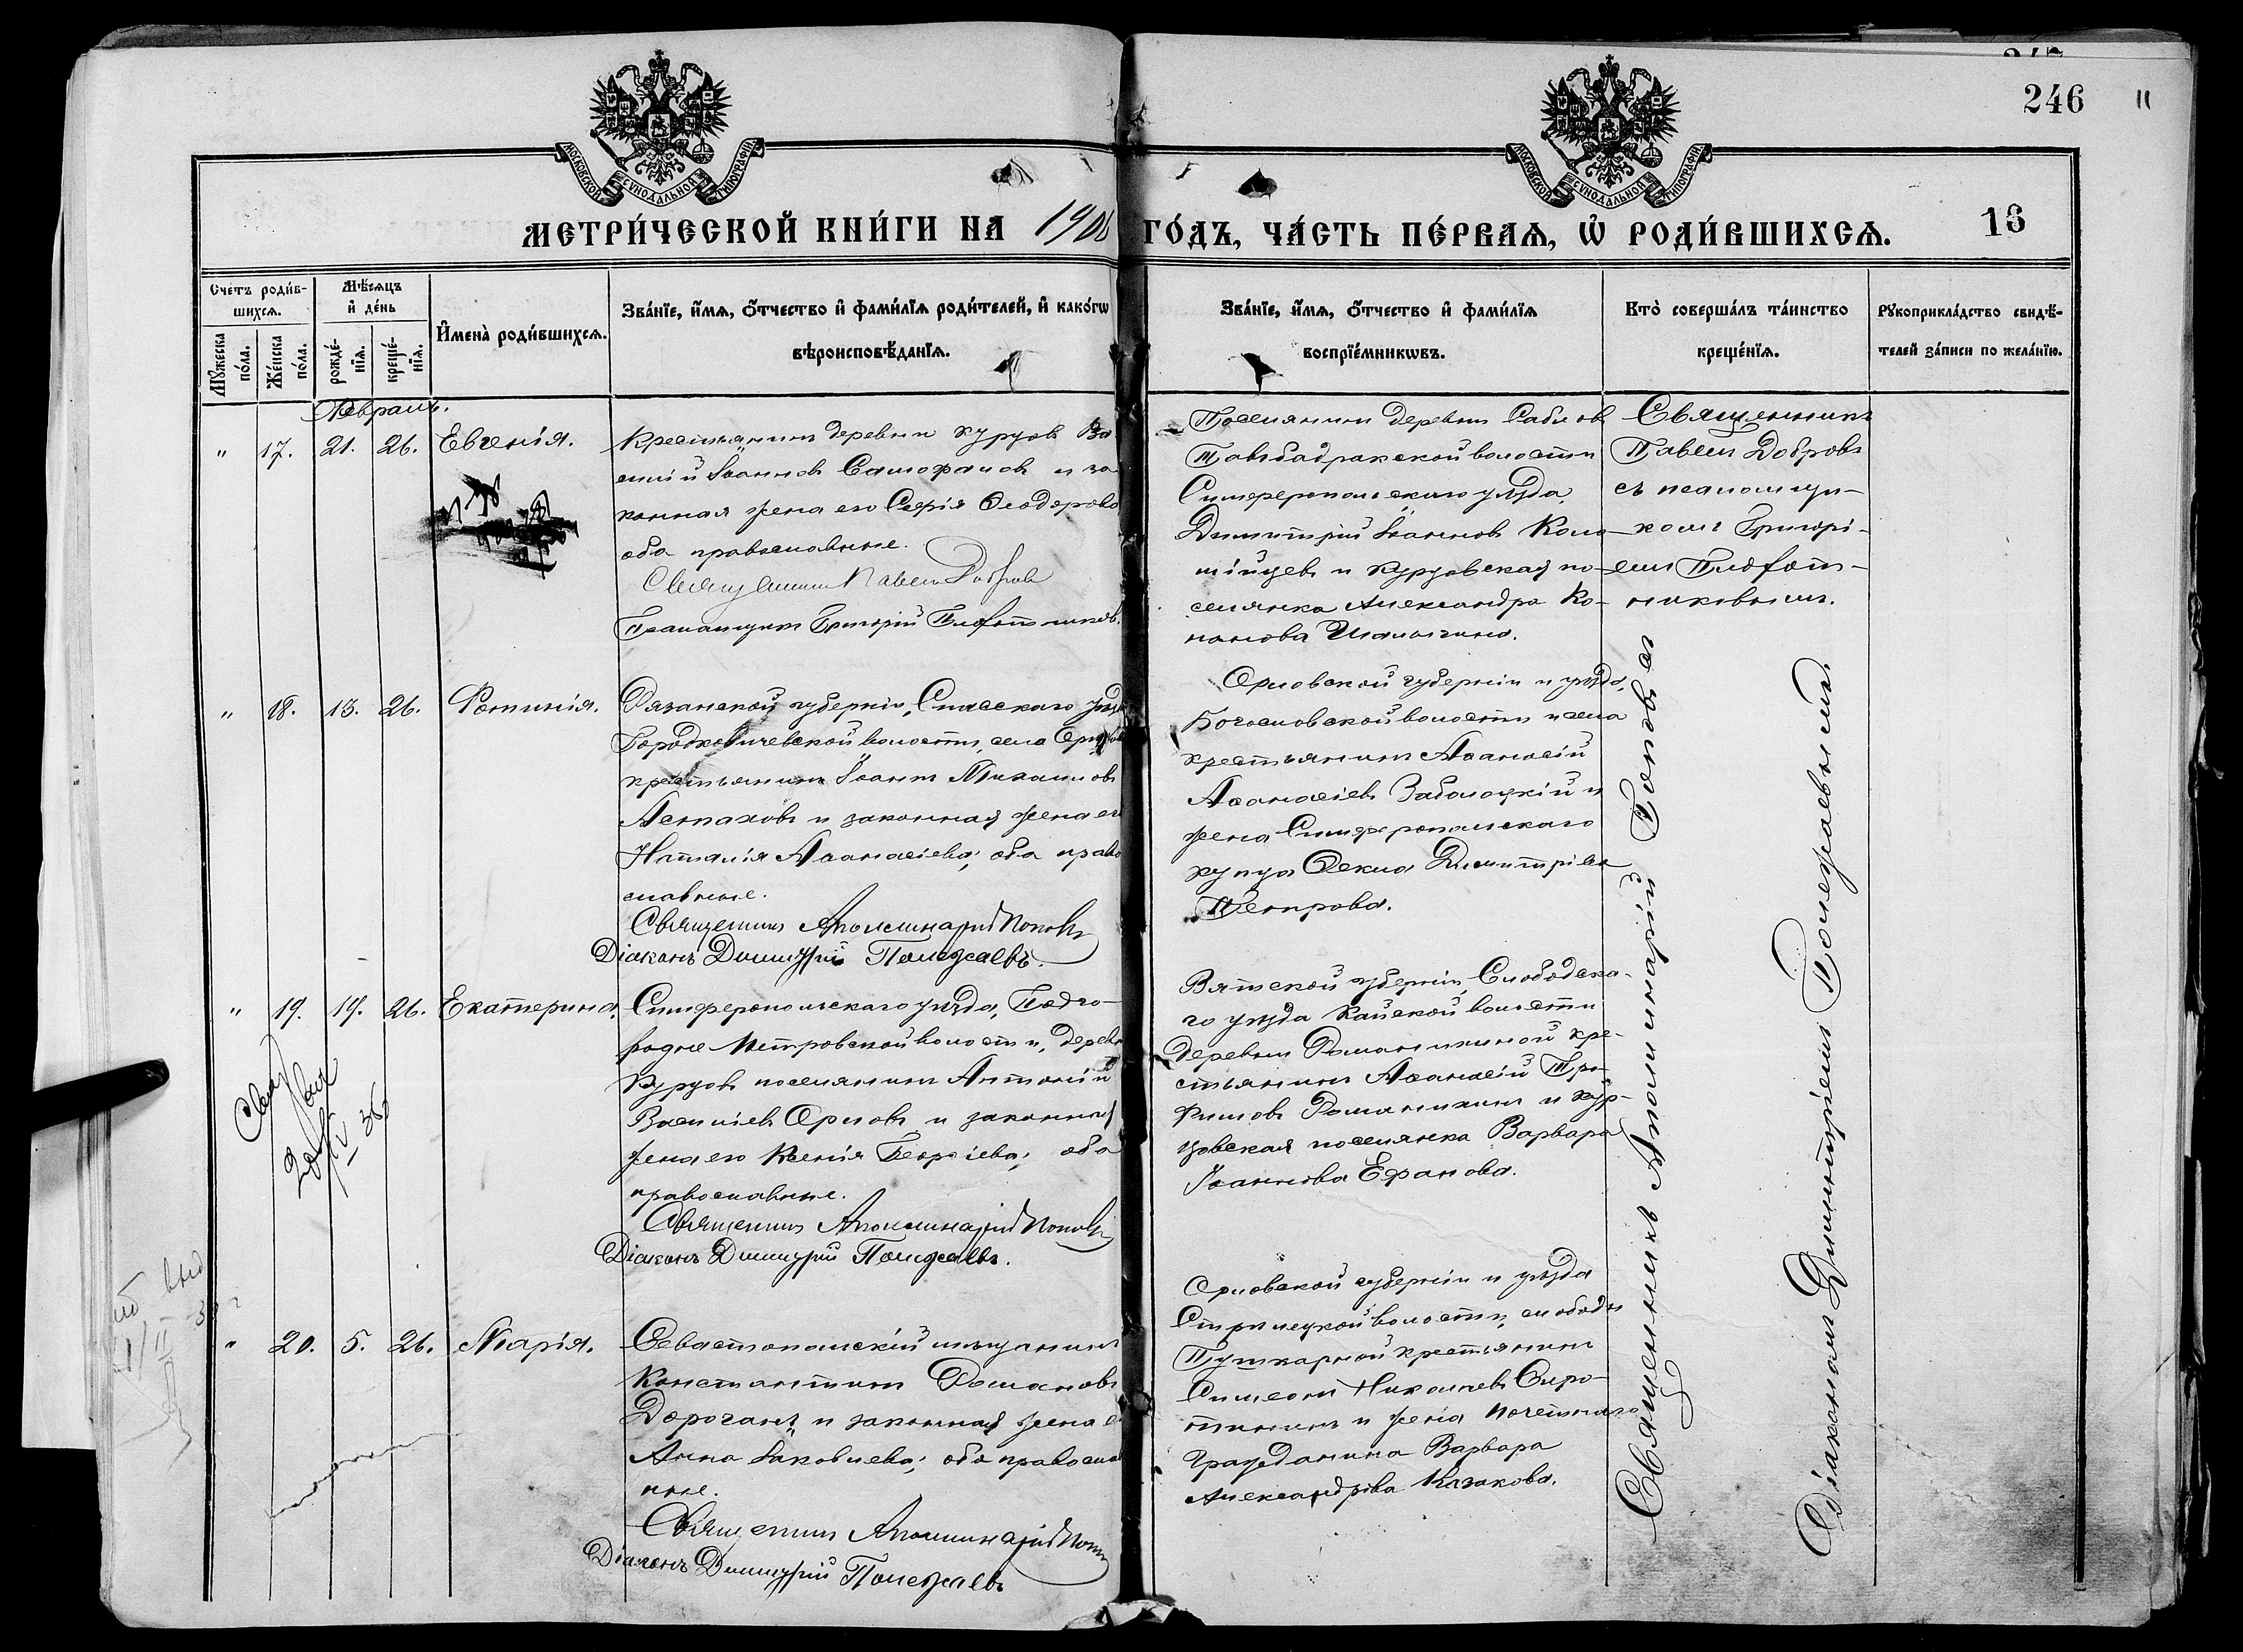 246
11
МОСКОВСКОЙ СѴНОДАЛЬНОЙ ТИПОГРАФІИ
МОСКОВСКОЙ СѴНОДАЛЬНОЙ ТИПОГРАФІИ
МЕТРИ́ЧЕСКОЙ КНИ́ГИ НА 190
ГО́ДЪ, ЧА́СТЬ ПЕ́РВАѦ, Ѡ҆ РОДИ́ВШИХСѦ.
Сче́тъ роди́в-
шихсѧ.
Мꙋ́жеска по́ла.
Же́нска по́ла.
Мѣ́сѧцъ и҆ де́нь
рожде́-нїѧ.
креще́-нїѧ.
И҆мена̀ роди́вшихсѧ.
Зва́нїе, и҆́мѧ, ѻ҆́тчество и҆ фами́лїѧ роди́телей, и҆ како́гѡ
вѣроисповѣ́данїѧ.
Зва́нїе, и҆́мѧ, ѻ҆́тчество и҆ фами́лїѧ
воспрїе́мникѡвъ.
Кто̀ соверша́лъ та́инство
креще́нїѧ.
Рꙋкоприкла́дство свидѣ́-
телей за́писи по жела́нїю.
Февраль.
" 17. 21. 26. Евгенія.
Крестьянинъ деревни Курцовъ Ва
силій Іоанновъ и за
конная жена его Софія Ѳеодорова
оба православные.
Священникъ Павелъ Добровъ
Псаломщикъ Григорій Плотниковъ.
Поселянинъ деревни Саблов
Тавъ-бадракской волости
Симферопольскаго уѣзда
Димитрій Іоанновъ Коло-
мійцевъ и Курцовская по-
селянка Александра Ко-
нонова Шалыгина.
Священникъ
Павелъ Добровъ
съ псаломщи-
комъ Григорі-
емъ Плот-
никовымъ.
" 18. 13. 26. Фотинія.
Рязанской губерніи, Спасскаго уѣзд
Городковичевской волости, села
крестьянинъ Іоаннъ Михаиловъ
Астаховъ и законная жена его
Наталія Аѳанасіева; оба право
славные.
Священникъ Аполлинарій Поповъ
Діаконъ Димитрій Полежаевъ.
Орловской губерніи и уѣзда,
Богословской волости и села
крестьянинъ Аѳанасій
Аѳанасіевъ Заболоцкій и
жена Симферопольскаго
купца Ѳекла Димитріева
Петрова.
" 19. 19. 26. Екатерина.
Симферопольскаго уѣзда, Подго-
родне Петровской волости, дерев
Курцовъ поселянинъ Антоній
Василіевъ Орловъ и законная
жена его Ксенія Георгіева; оба
православные.
Священникъ Аполлинарій Поповъ
Діаконъ Димитрій Полежаевъ.
Вятской губерніи, Слободска-
го уѣзда Кайской волости
деревни Романихиной кре-
стьянинъ Аѳанасій Тро-
фимовъ Романихинъ и Кур-
цовская поселянка Варвара
Іоаннова Ефанова.
" 20. 5. 26. Марія.
Севастопольскій мѣщанинъ
Константинъ Романовъ
Дороганъ и законная жена е
Анна Іаковлева; оба правосла
ные.
Священникъ Аполлинарій Попов
Діаконъ Димитрій Полежаевъ
Орловской губерніи и уѣзда
Стрѣлецкой волости, слободы
Пушкарной крестьянинъ
Симеонъ Николаевъ Сиро-
тининъ и жена почетнаго
гражданина Варвара
Александрова Казакова.
Священникъ Аполлинарій Поповъ съ
Діакономъ Димитріемъ Полежаевымъ.